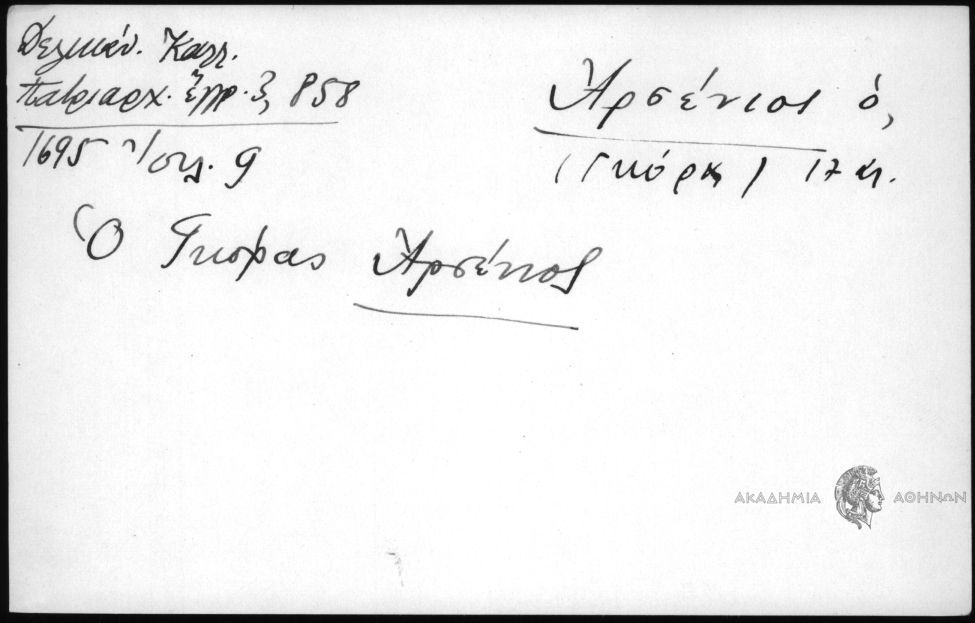 Δελικάν. Καλλ.
Πατριαρχ. ἔγγρ. 3, 858
1695 Ἰουλ. 9
Ἀρσένιος ὁ,
(Γκόρας) 17 αἰ.
Ὁ Γκόρας Ἀρσένιος
ΑΚΑΔΗΜΙΑ ΑΘΗΝΩΝ